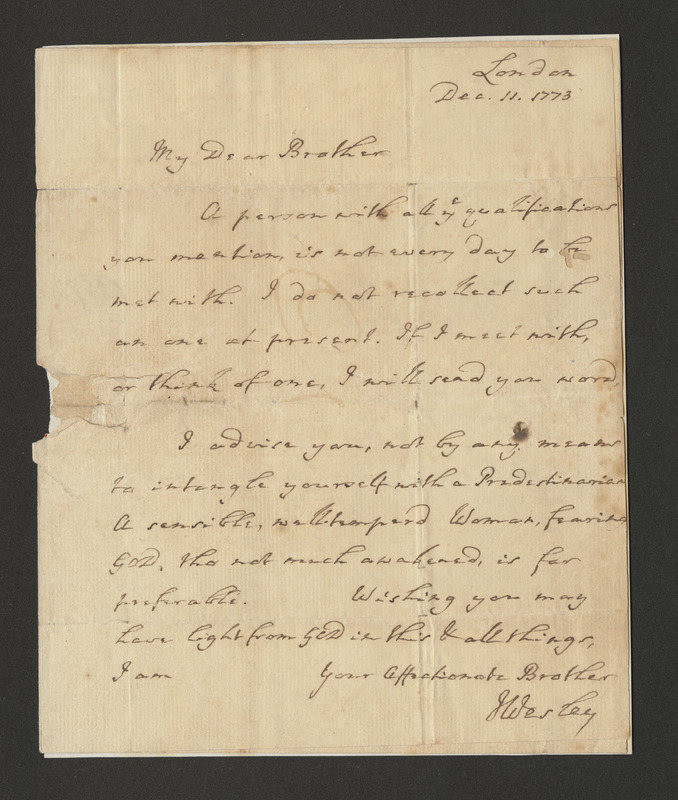 London
Dec. 11. 1773
My Dear Brother
A person with all yͤ qualifications
you mention, is not every day to be
met with. I do not recollect such
an one at present. If I meet with,
or think of one, I will send you word.
I advise you, not by any means
to intangle yourself with a Predestinarian
A sensible, well-temperd Woman, fearing
GOD, tho not much awakened, is far
preferable. Wishing you may
have light from GOD in this & all things,
I am Your Affectionate Brother
JWesley